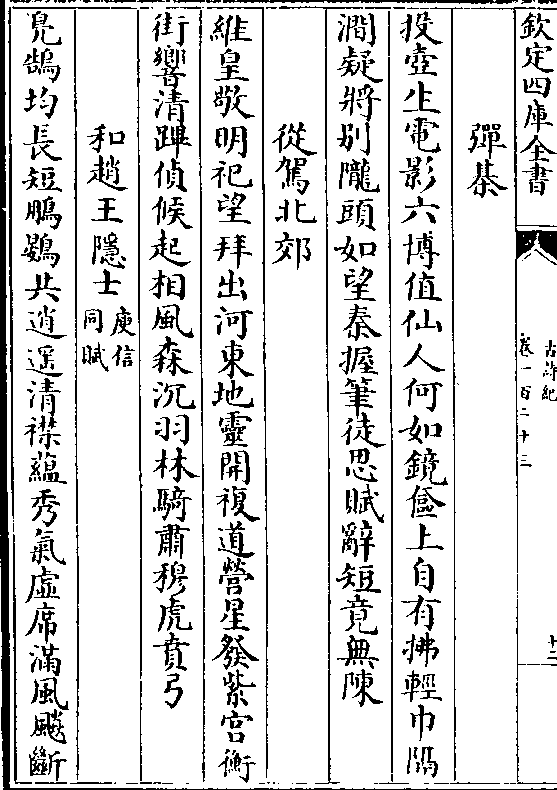 欽定四庫全書
古詩紀
卷一百二十三
十二
彈棊
投壺生電影六博值仙人何如鏡奩上自有拂輕巾隔
澗疑將别隴頭如望秦握筆徒思賦辭短竟無陳
從駕北郊
維皇敬明祀望拜出河東地靈開複道營星發紫宫衡
街響清蹕偵候起相風森沉羽林騎肅穆虎賁弓
和趙王隱士庾信同賦
凫鵠均長短鵬鷃共逍遥清襟藴秀氣虛席滿風飈斷